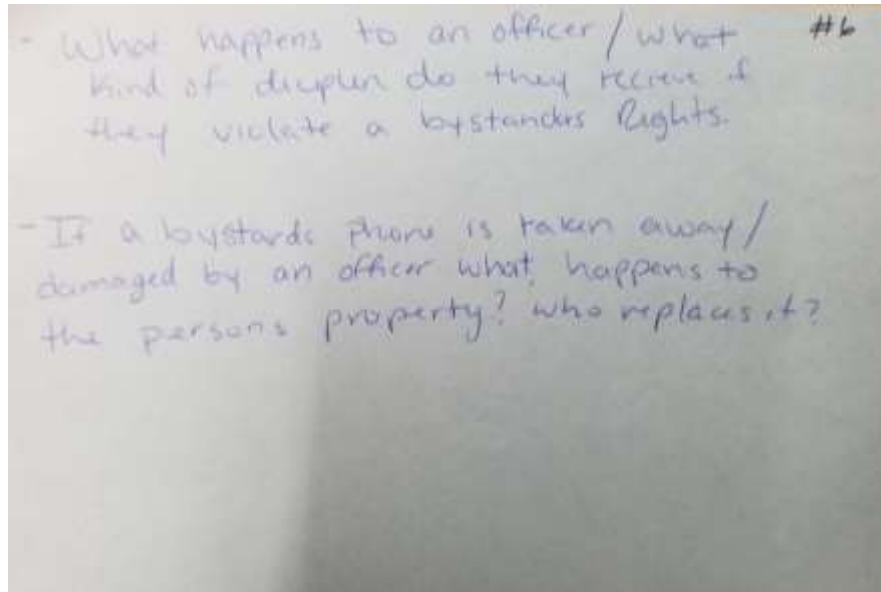 - What happens to an officer / what #6
kind of discplin do they recieve if
they violate a bystanders Rights.
- If a bystards phone is taken away /
damaged by an officer what happens to
the persons property? who replaces it?